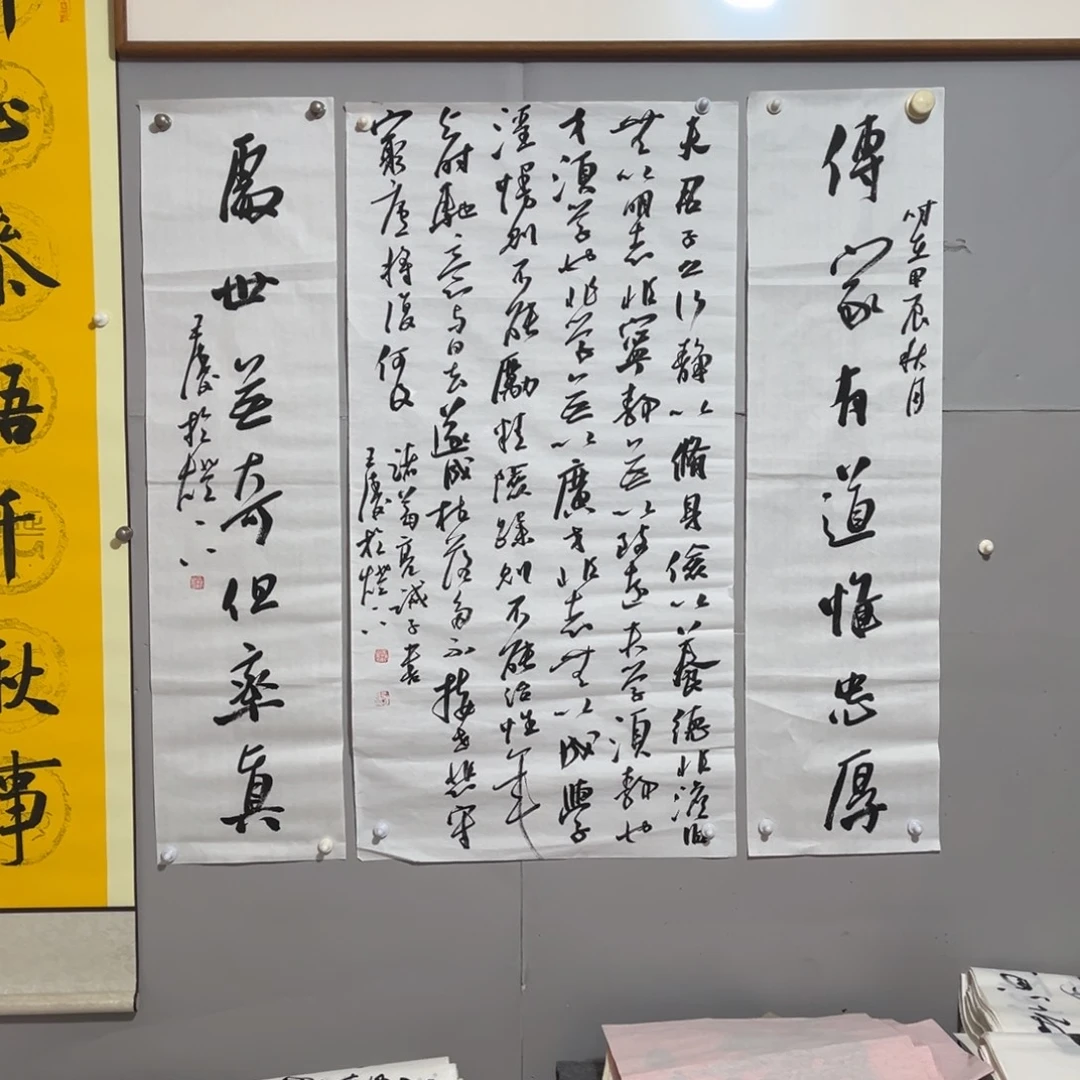 時在甲辰秋月
傳家有道惟忠厚
夫君子之行靜以脩身儉以養德非澹泊
無以明志非寧靜無以致遠夫學須靜也
才須學也非學無以廣才非志無以成學
淫慢則不能勵精險躁則不能治性年
與時馳意與日去遂成枯落多不接世悲守
窮廬將復何及
諸葛亮誡子書
處世無奇但率真
千秋事